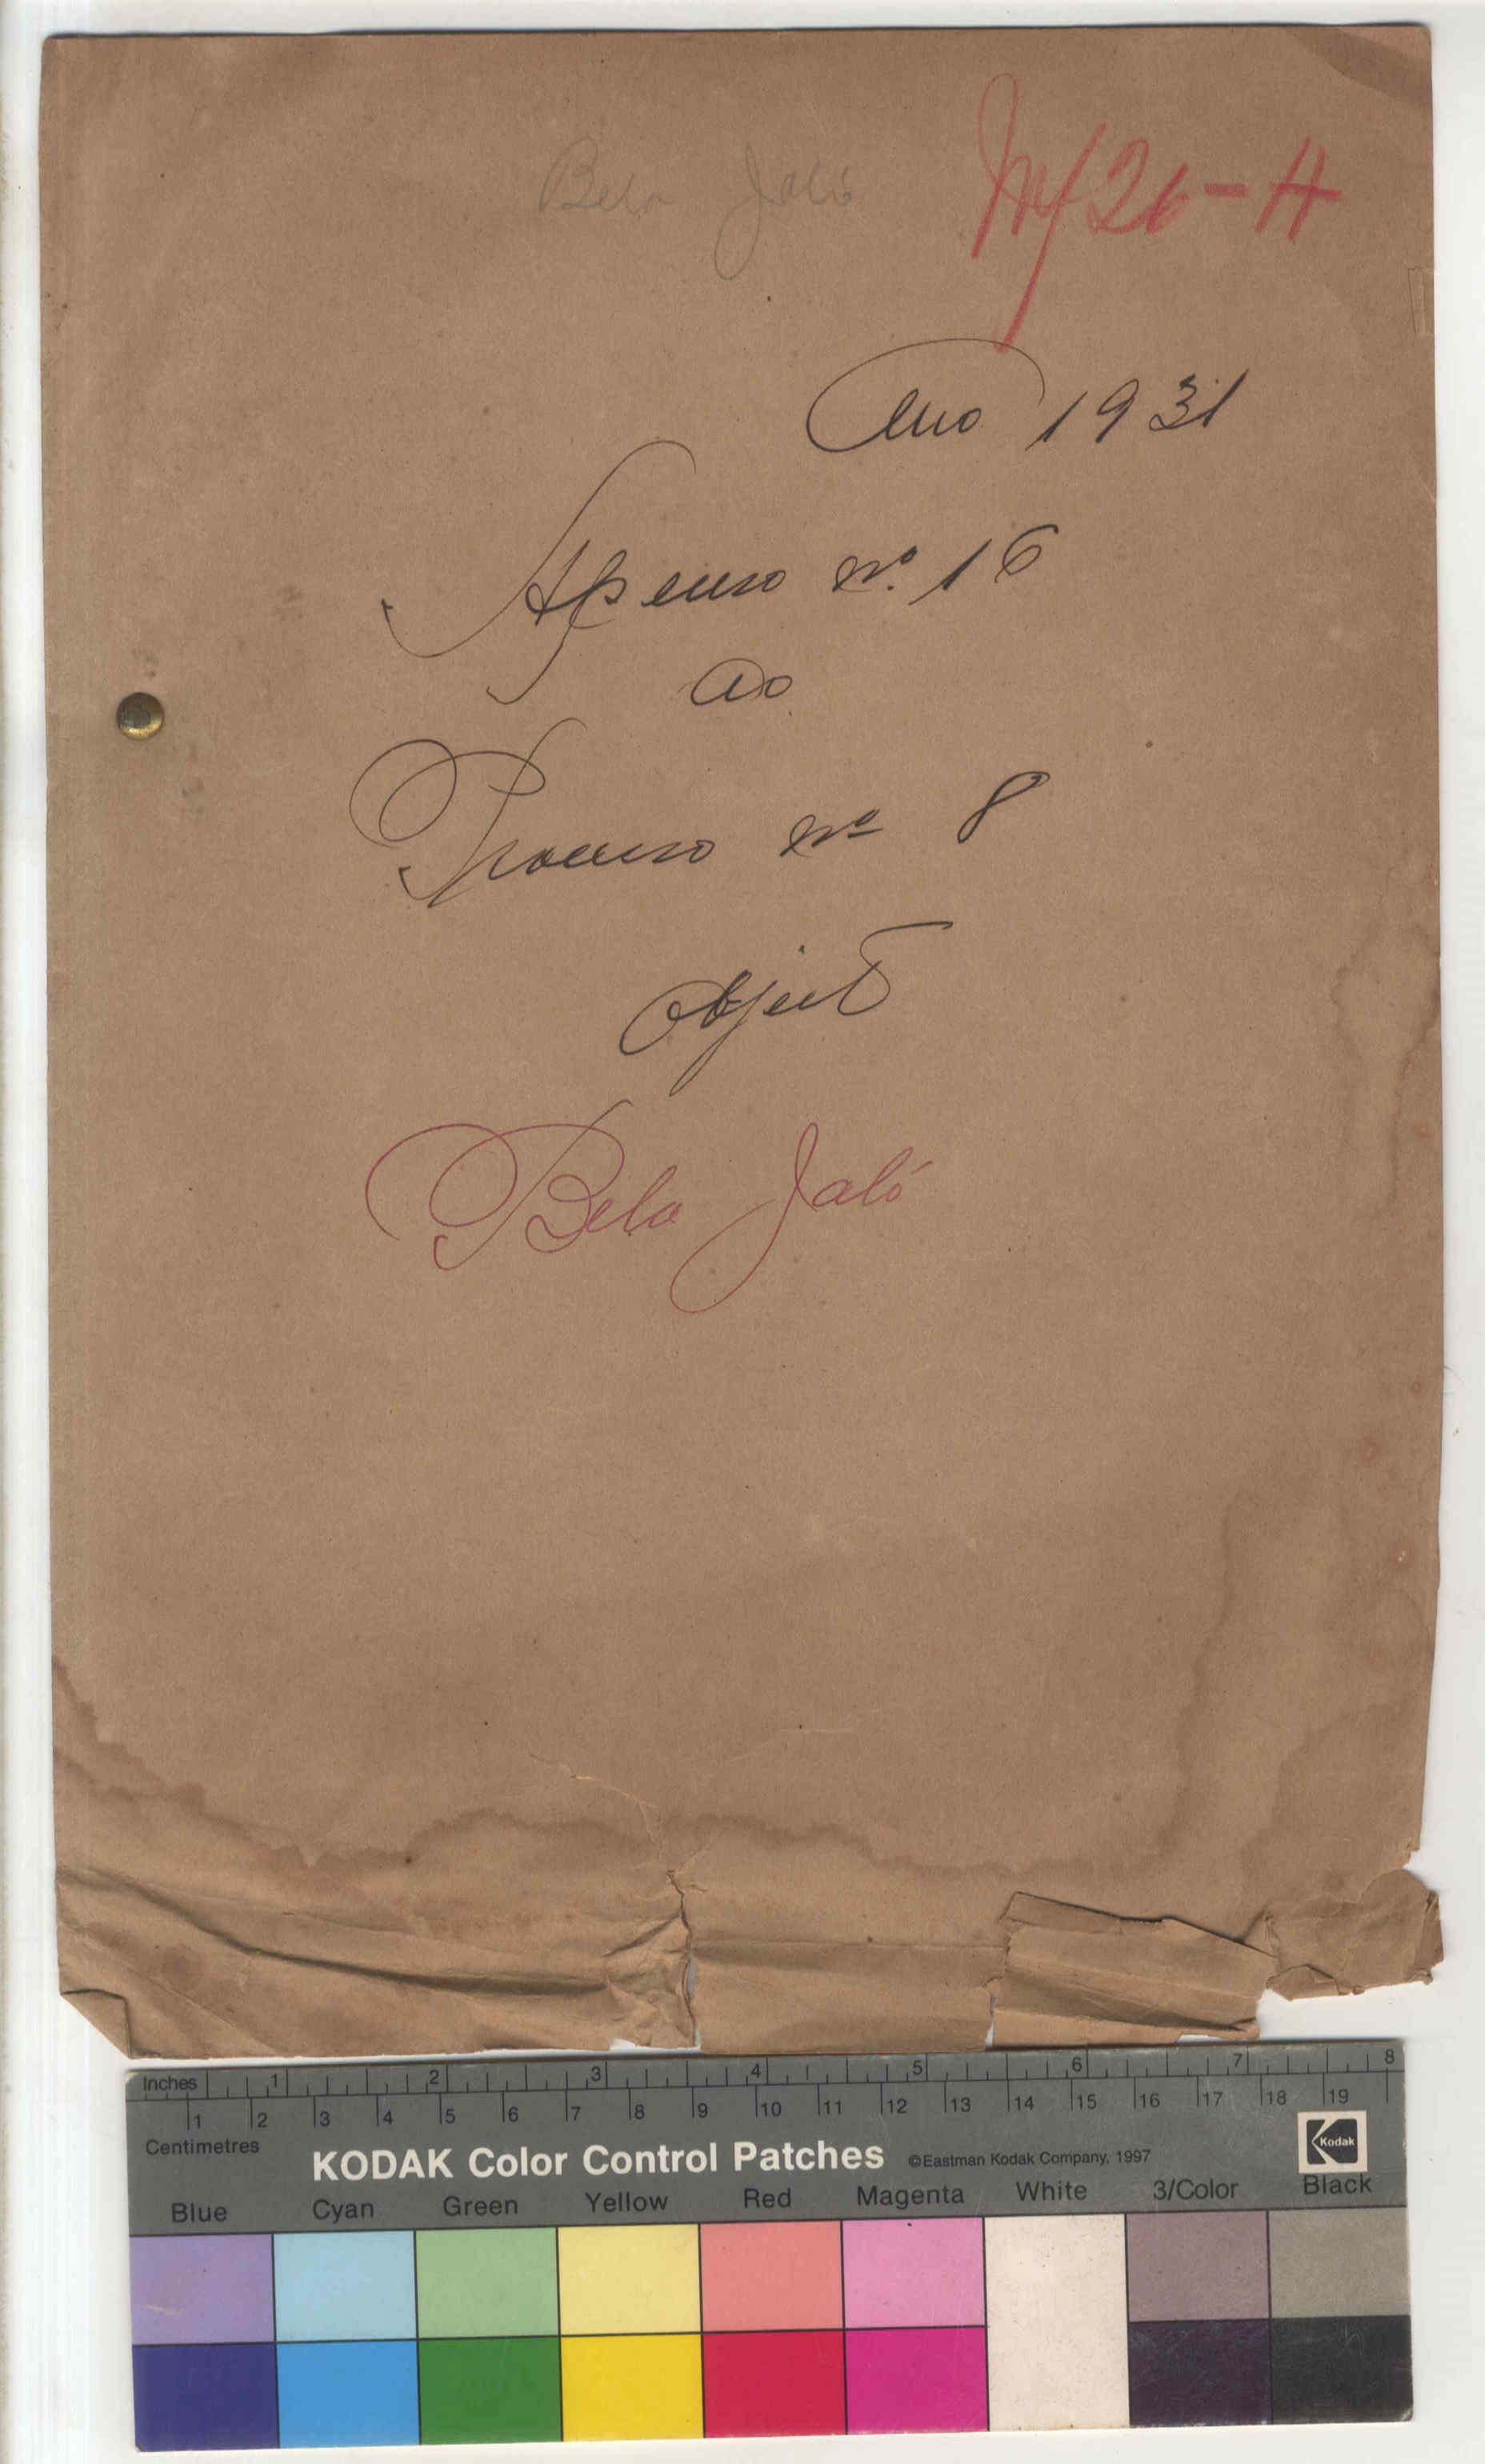 Bela Jaló
26-H
Ano 1931
Apenso nº 16
ao
Processo nº 8
Objecto
Bela Jaló
Inches 1 2 3 4 5 6 7 8
1 2 3 4 5 6 7 8 9 10 11 12 13 14 15 16 17 18 19
Centimetres
KODAK Color Control Patches ©Eastman Kodak Company, 1997 Kodak
Blue Cyan Green Yellow Red Magenta White 3/Color Black